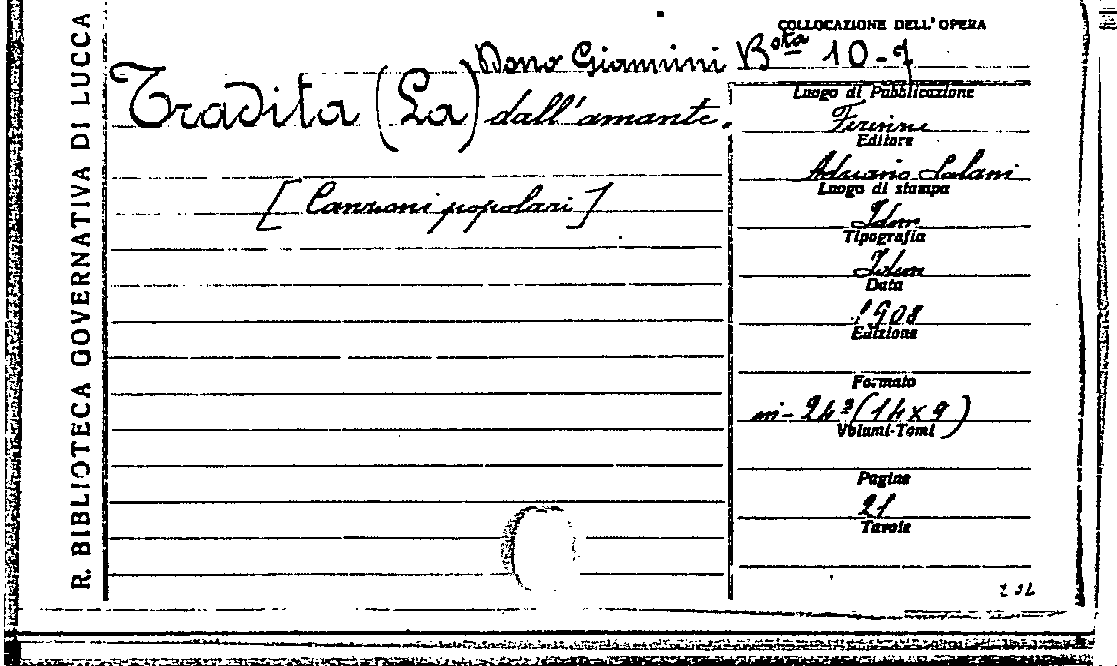 R. BIBLIOTECA GOVERNATIVA DI LUCCA
COLLOCAZIONE DELL'OPERA
Dono Giannini Bsta 10-7
Tradita (La) dall'amante.
[Canzoni popolari]
Luogo di Pubblicazione
Firenze
Editore
Adriano Salani
Luogo di stampa
Idem
Tipografia
Idem
Data
1908
Edizione
Formato
in-24º (14x9)
Volumi-Tomi
Pagine
21
Tavole